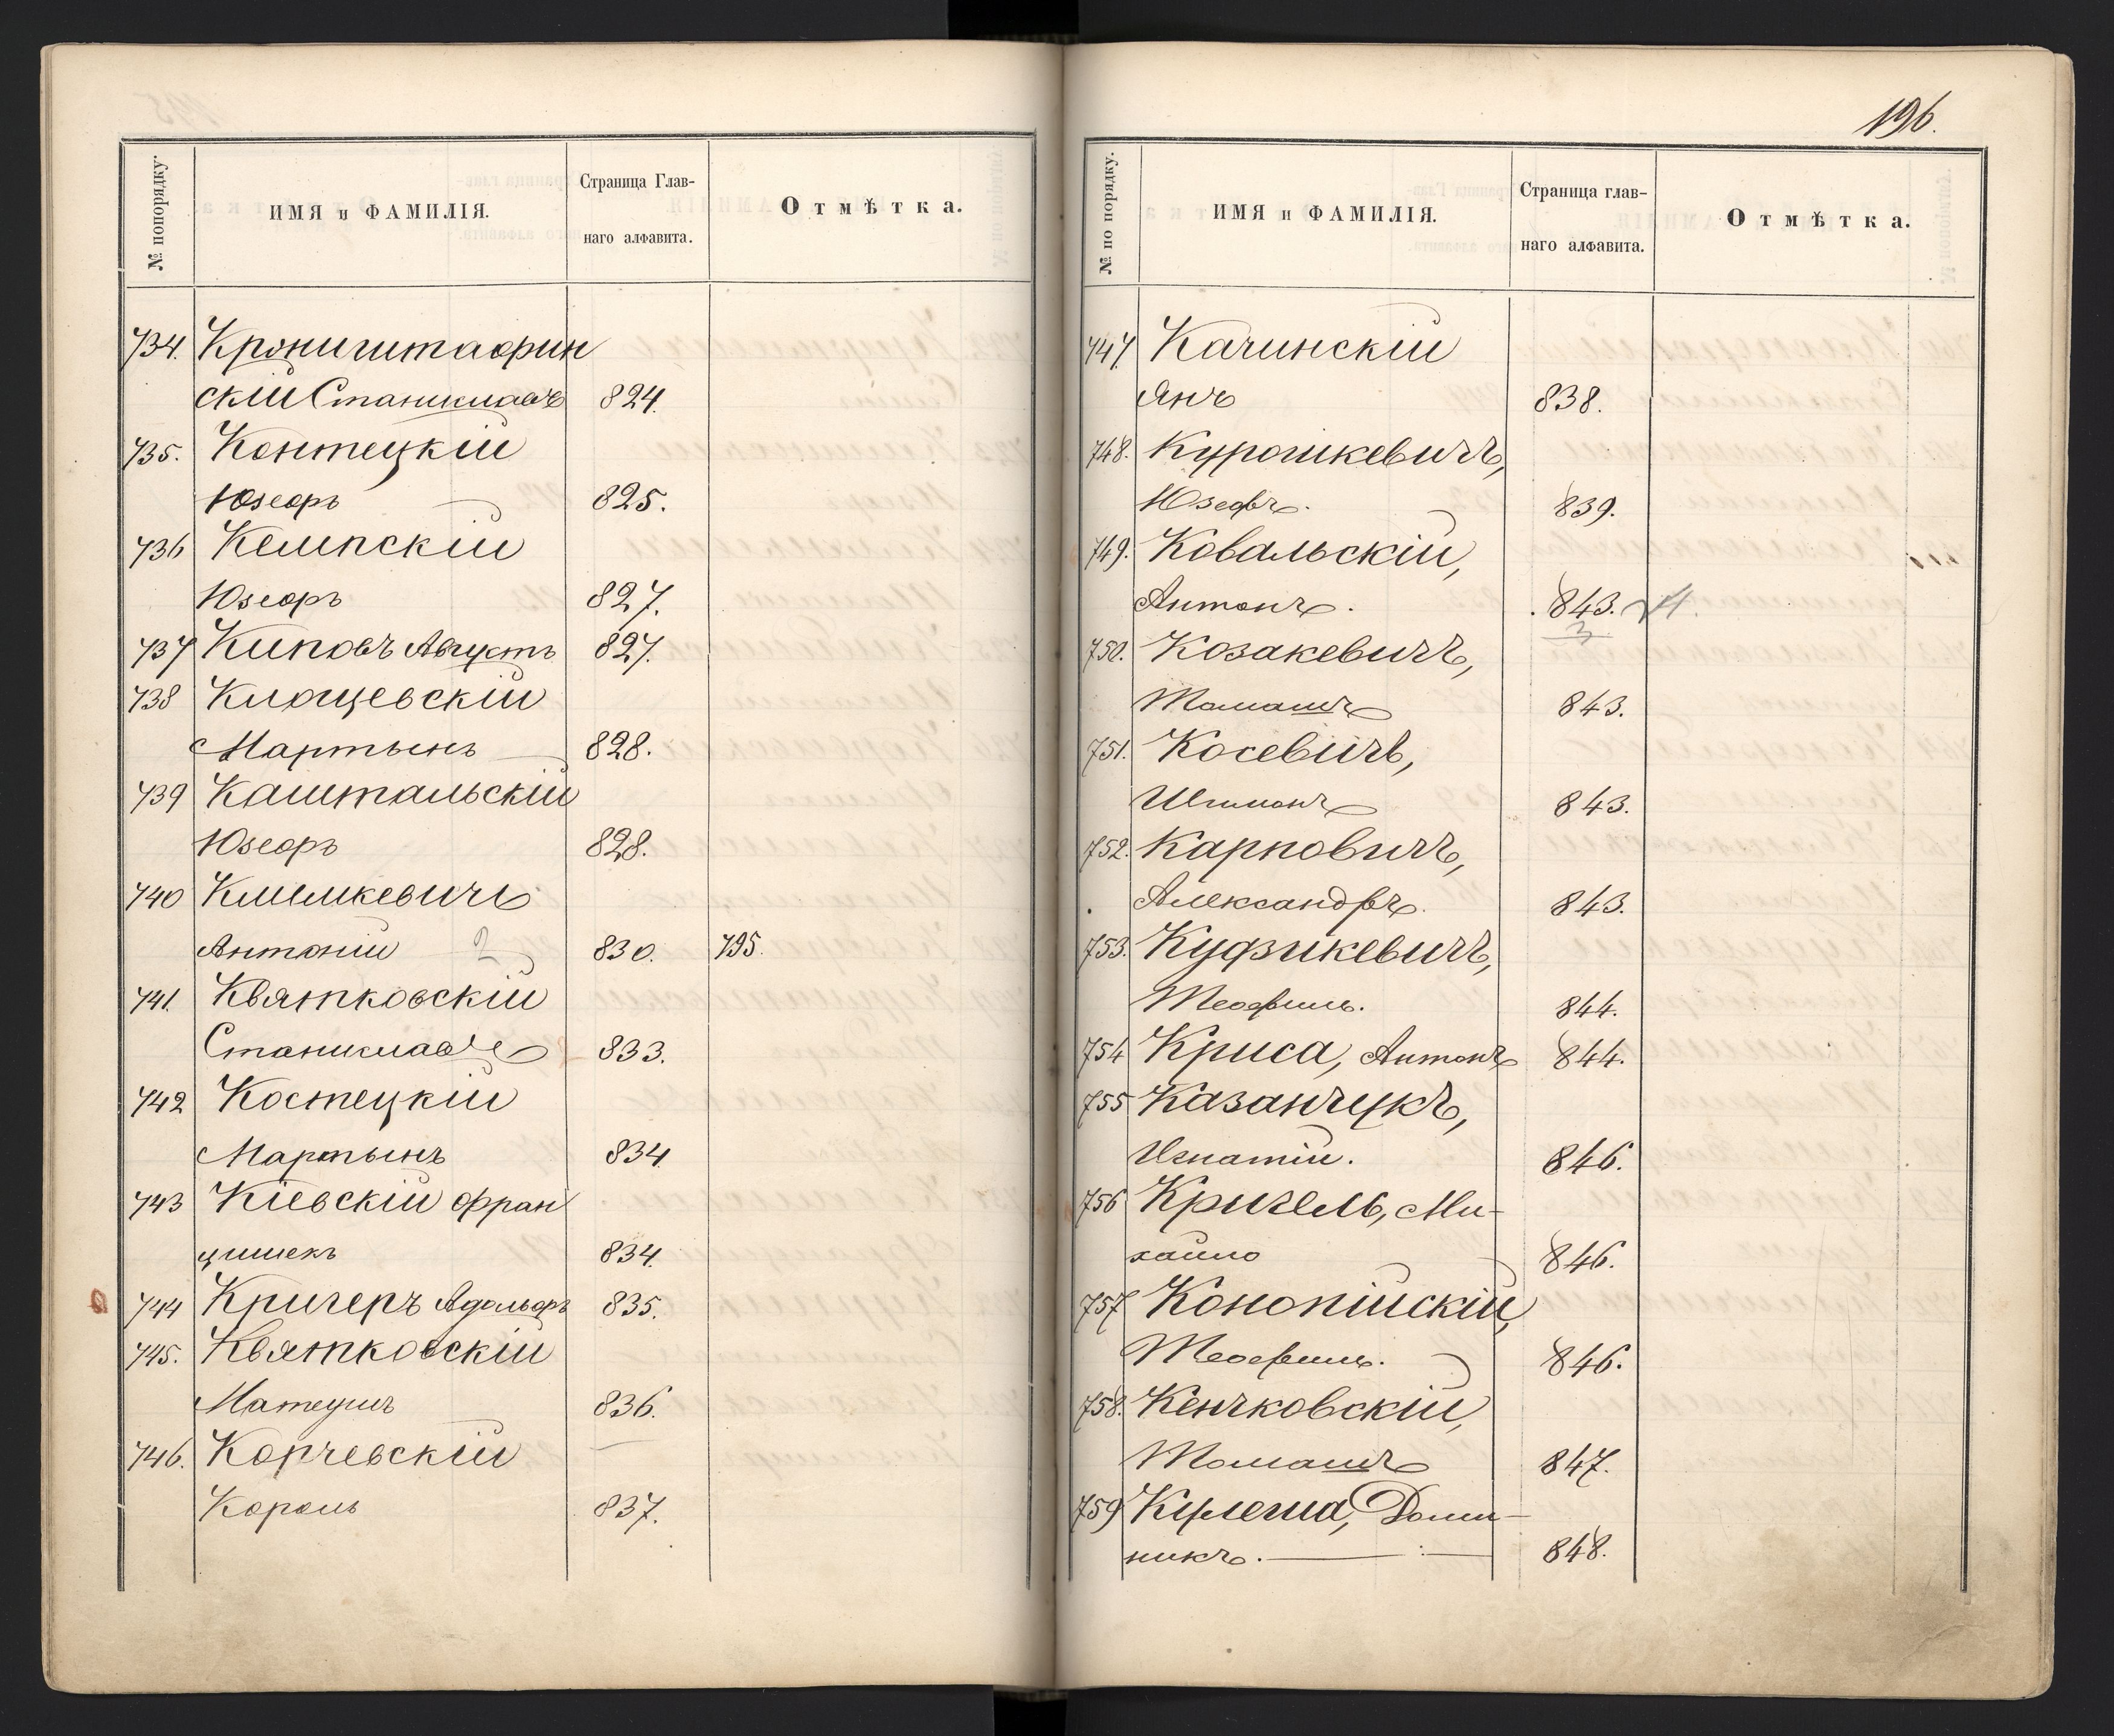 № попорядку.
ИМЯ и ФАМИЛІЯ.
Страница Глав-
наго алфавита.
Отмѣтка.
734. Кронгштафин
скій Станиславъ 824.
735. Контецкій
Юзефъ 825.
736 Кемпскій
Юзефъ 827.
737 Киповъ Августъ 827.
738 Клоцевскій
Мартынъ 828.
739 Каштальскій
Юзефъ 828.
740 Климкевичъ
Антоній 2 830. 795.
741. Квятковскій
Станиславъ 833.
742 Костецкій
Мартынъ 834
743 Кіевскій Фран
цишекъ 834.
744 Кригеръ Адольфъ 835.
745. Квятковскій
Матеушъ 836.
746. Корчевскій
Кароль 837.
196.
№ по порядку.
ИМЯ и ФАМИЛІЯ.
Страница глав-
наго алфавита.
Отмѣтка.
747. Качинскій
Янъ 838.
748. Курошкевичъ,
Юзефъ. 839.
749. Ковальскій,
Антонъ. 843.
3
750. Козакевичъ,
Томашъ 843.
751. Косевичъ,
Шимонъ 843.
752. Карповичъ,
Александръ. 843.
753. Кудзикевичъ,
Теофиль. 844.
754 Криса, Антонъ 844.
755 Казанчукъ,
Игнатій. 846.
756 Кригель, Ми-
хайло 846.
757 Конопійскій,
Теофиль. 846.
758. Кенчковскій,
Томашъ 847.
759 Доми-
никъ. 848.